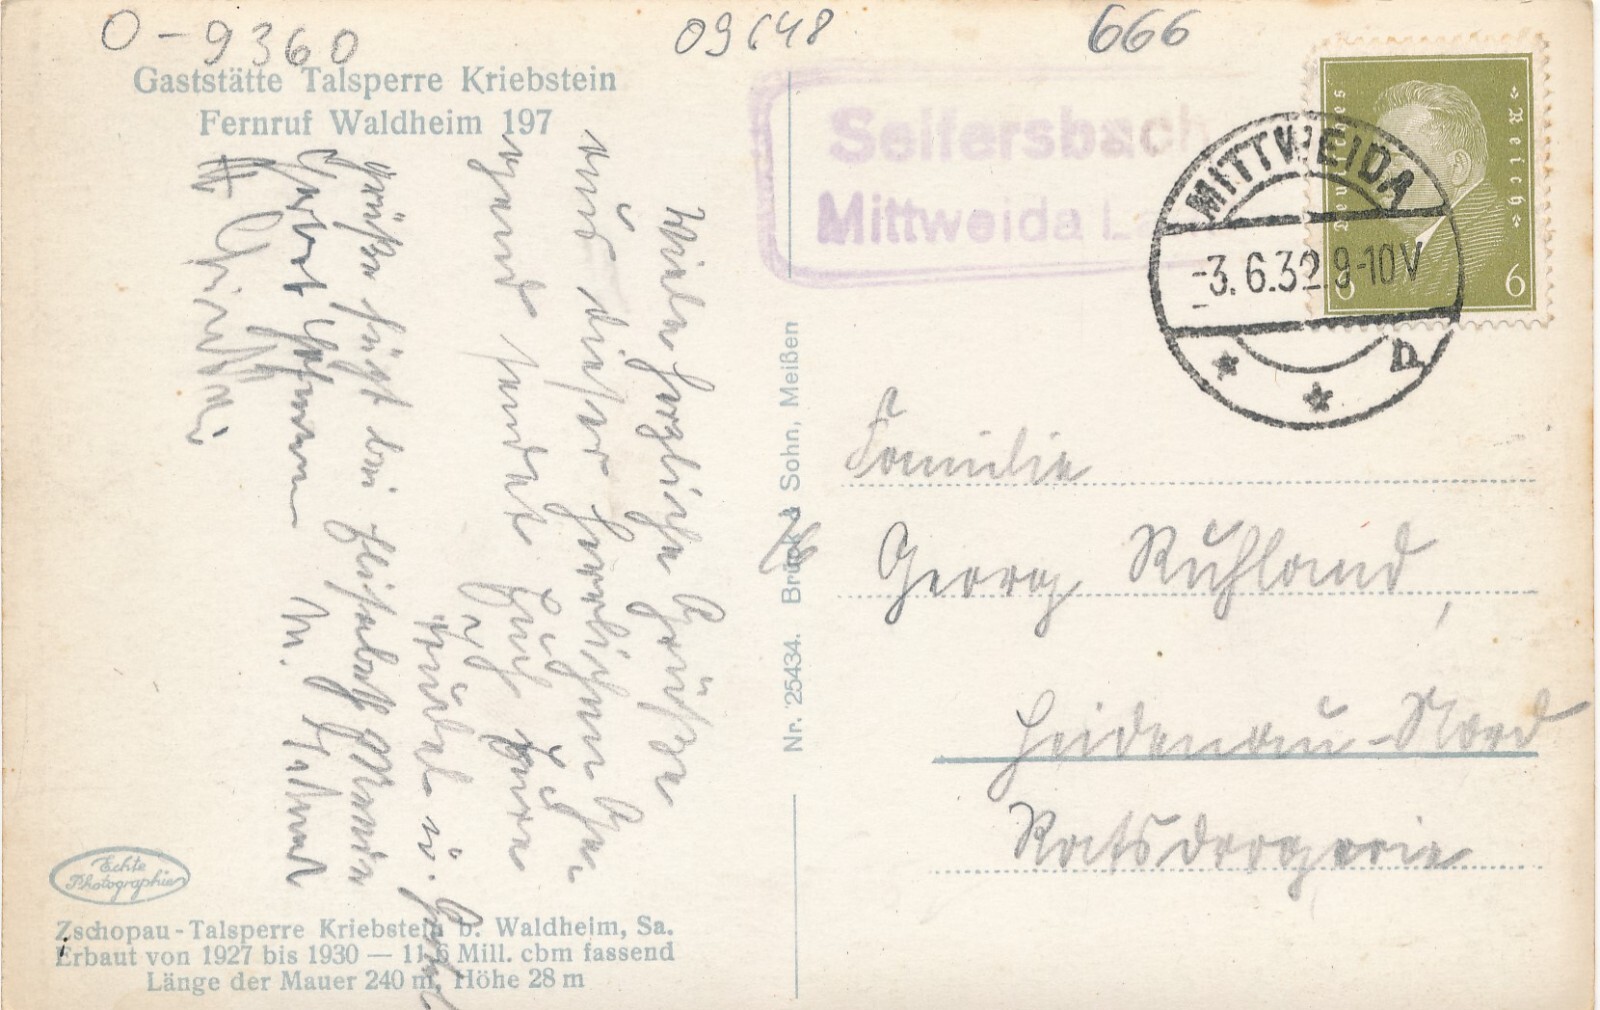 O-9360
09648
666
Gaststätte Talsperre Kriebstein
Fernruf Waldheim 197
Seifersbach
Mittweida La
MITTWEIDA
-3.6.32.9-10V
b
Deutsches Reich
6 6
Viele herzliche Grüße
aus dieser herrlichen Ge
gend sendet Euch Eure
Trudel u.
Grüße fügt bei Elisabeth
Nr. 25434. Brück & Sohn, Meißen
Familie
Georg Ruhland,
Heidenau-Nord
Ratsdrogerie
Echte
Photographie
Zschopau-Talsperre Kriebstein b. Waldheim, Sa.
Erbaut von 1927 bis 1930 — 11,6 Mill. cbm fassend
Länge der Mauer 240 m, Höhe 28 m